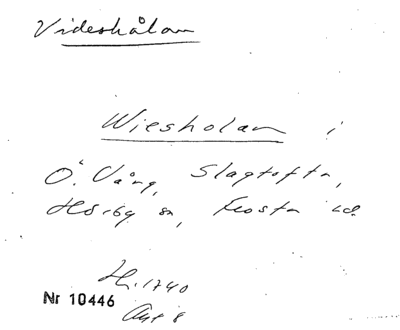 Videshålan
Wiesholan i
Ö. Vång, Slagtofta,
Hörby sn, Frosta hd.
H. 1740
Nr 10446
Akt 8